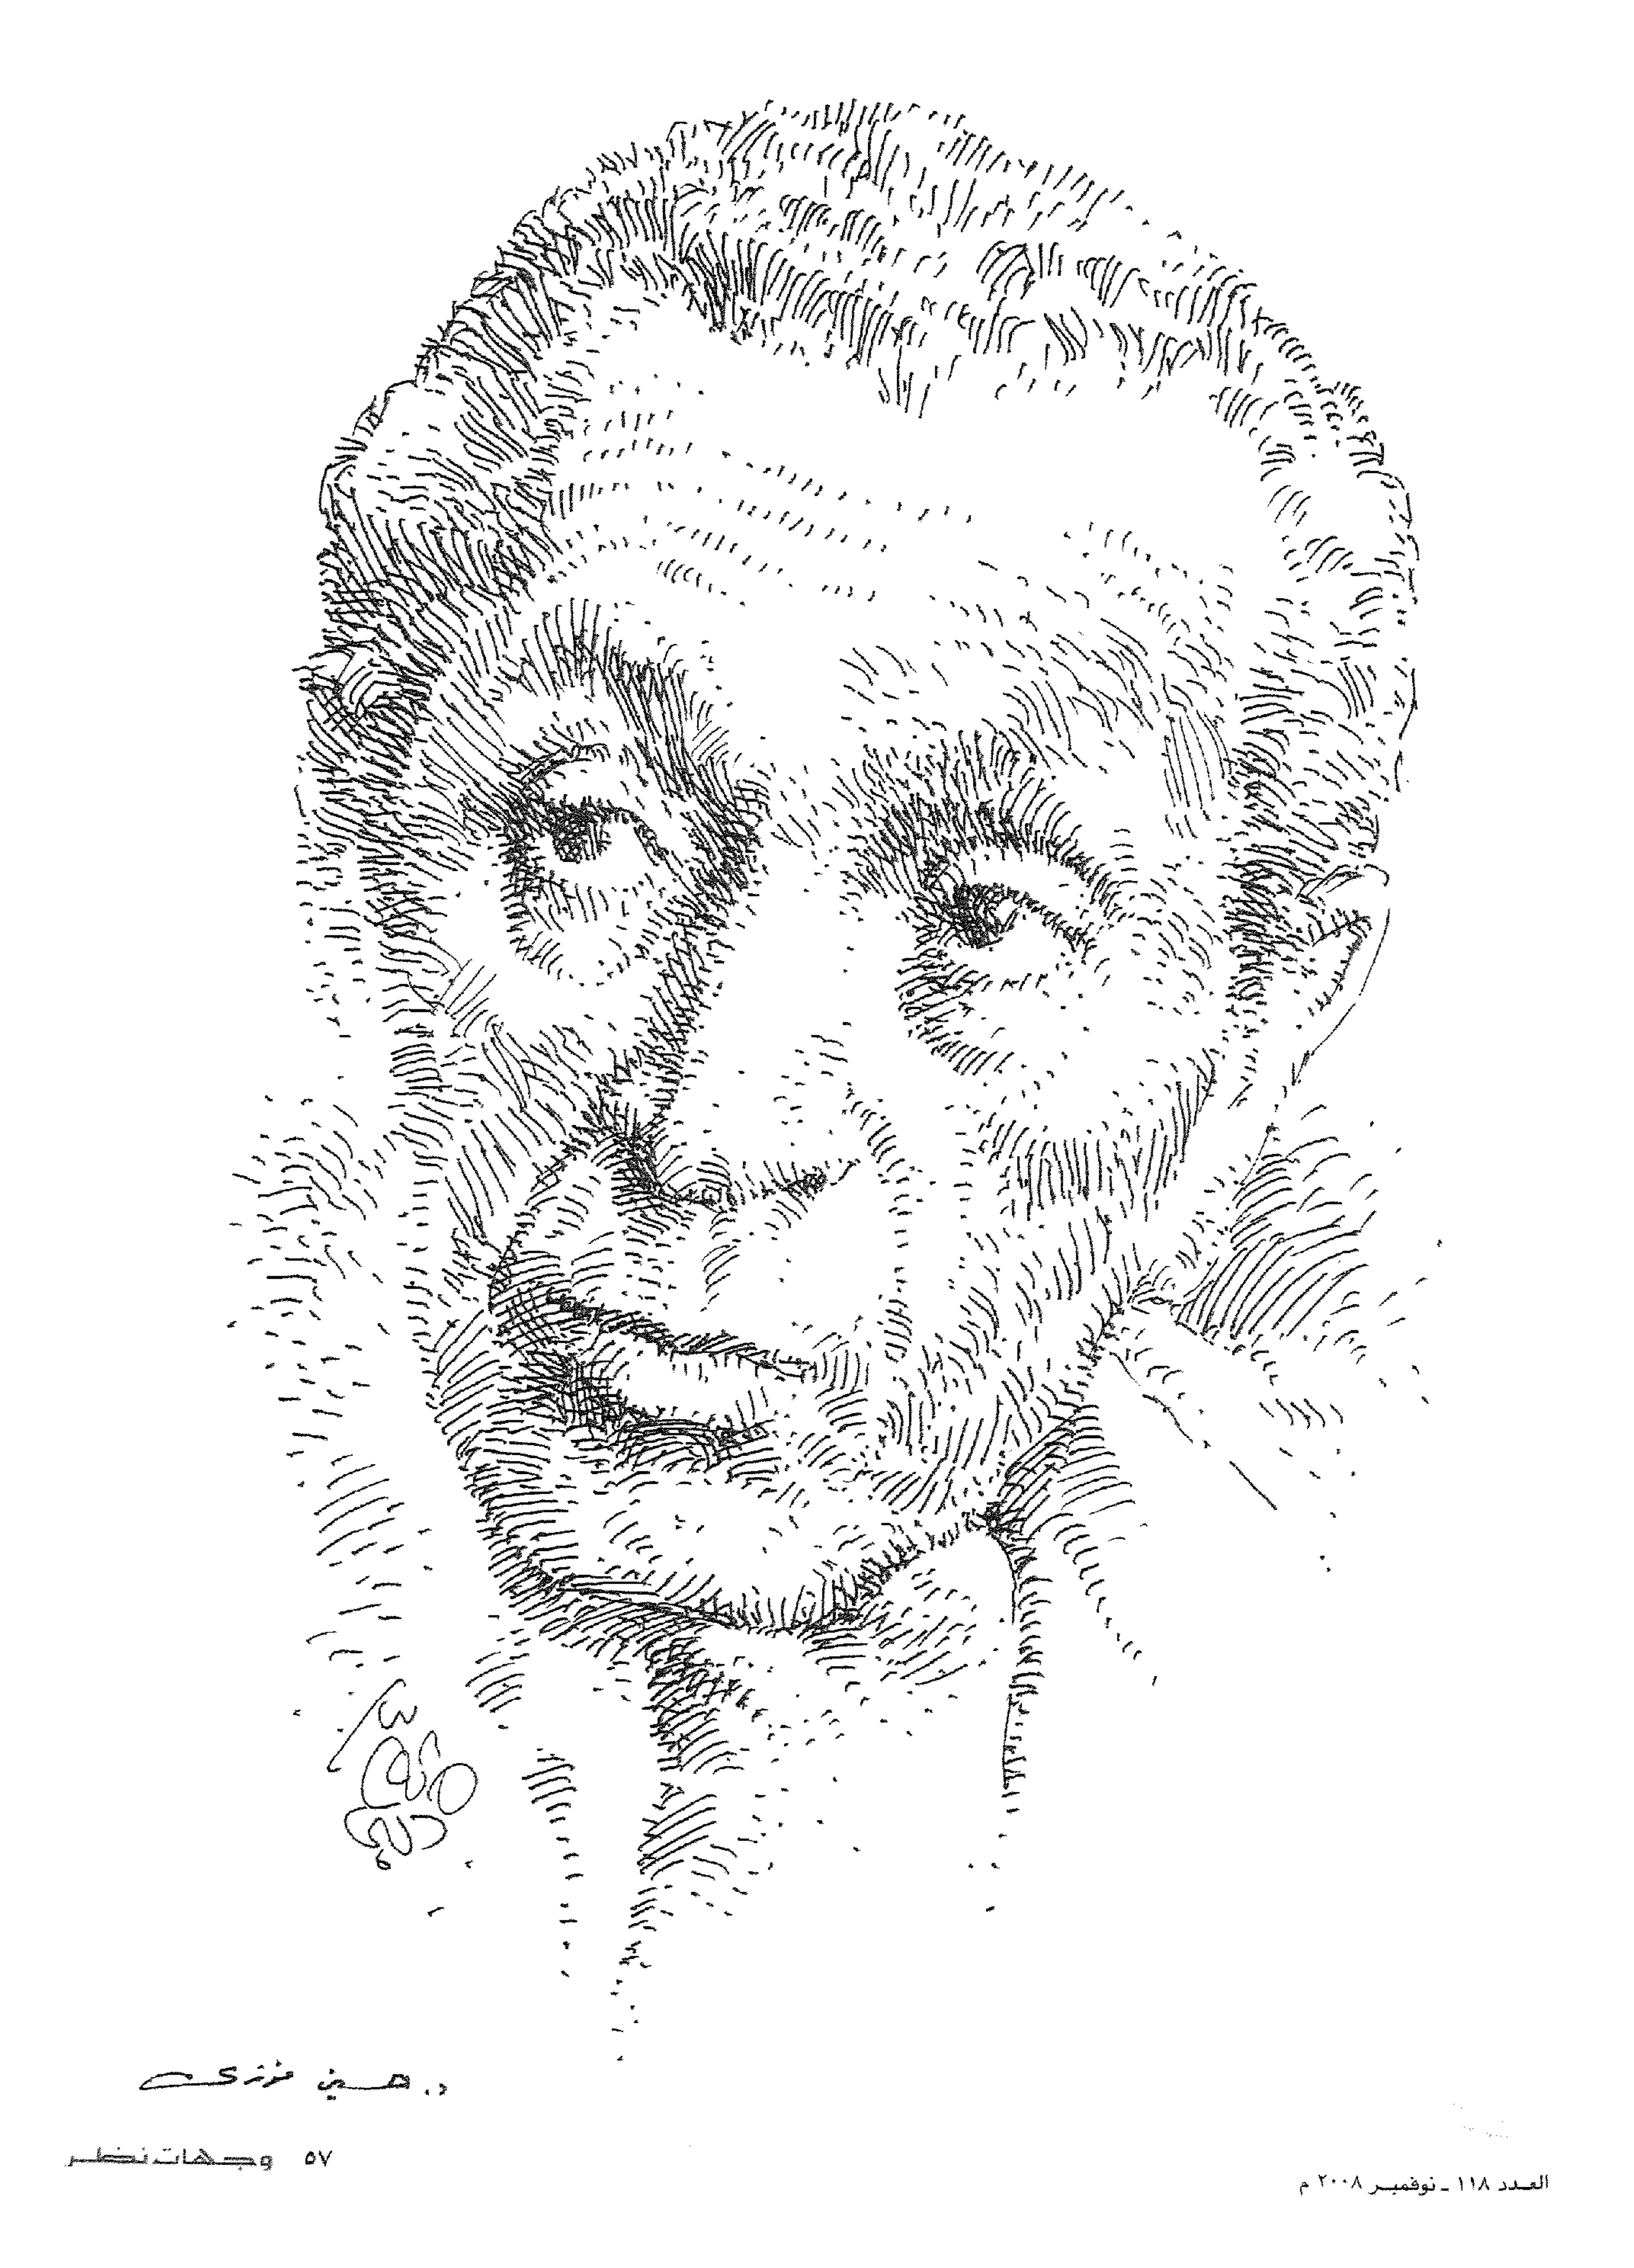 د. حسين فوزى
٥٧ وجهات نظر
العدد ١١٨ ـ نوفمبر ٢٠٠٨ م